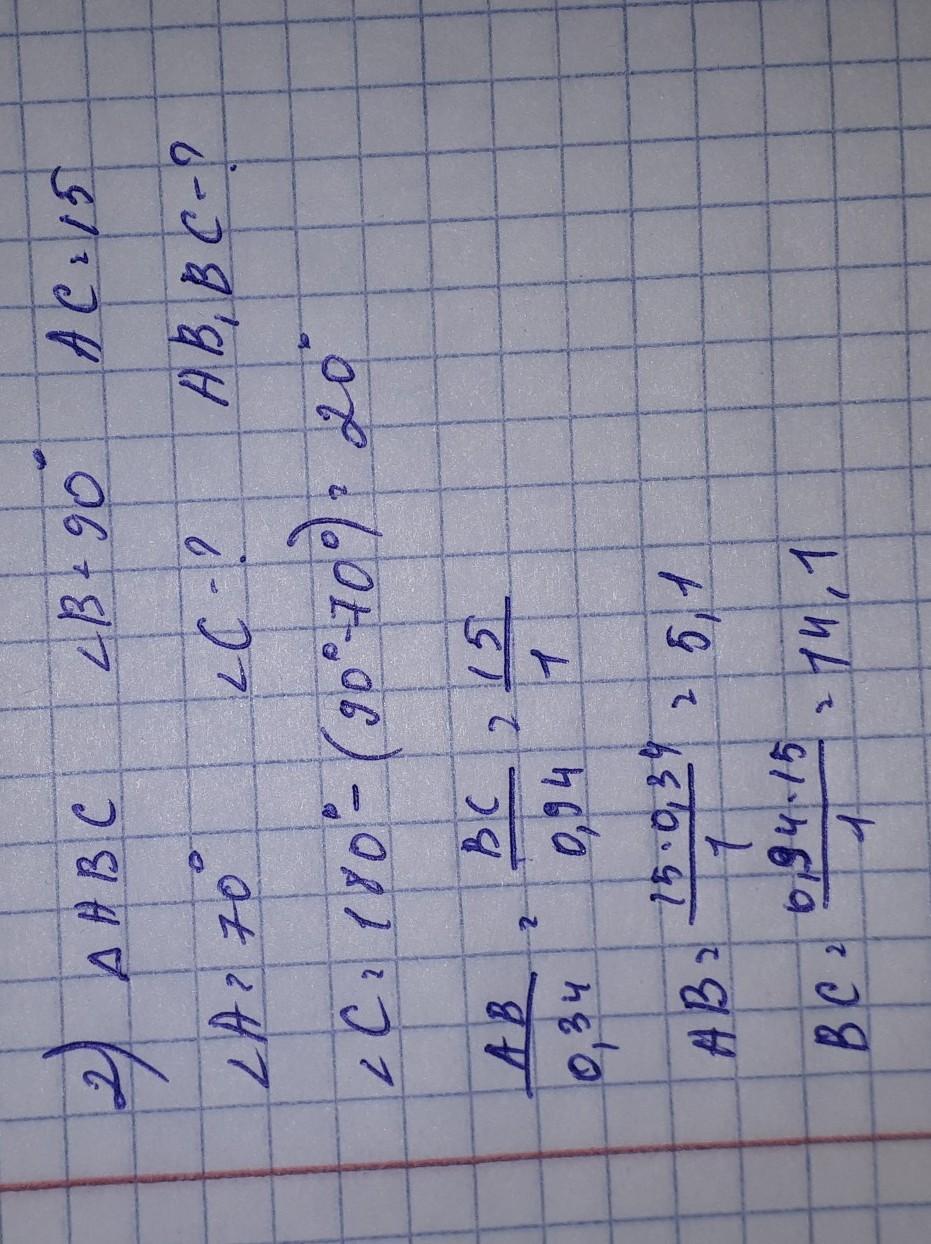 2) ΔABC ∠B=90° AC=15
∠A=70° ∠C-? AB, BC-?
∠C=180°-(90°-70°)=20°
AB/0,34 = BC/0,94 = 15/1
AB= 15·0,34/1 = 5,1
BC= 0,94·15/1 = 14,1